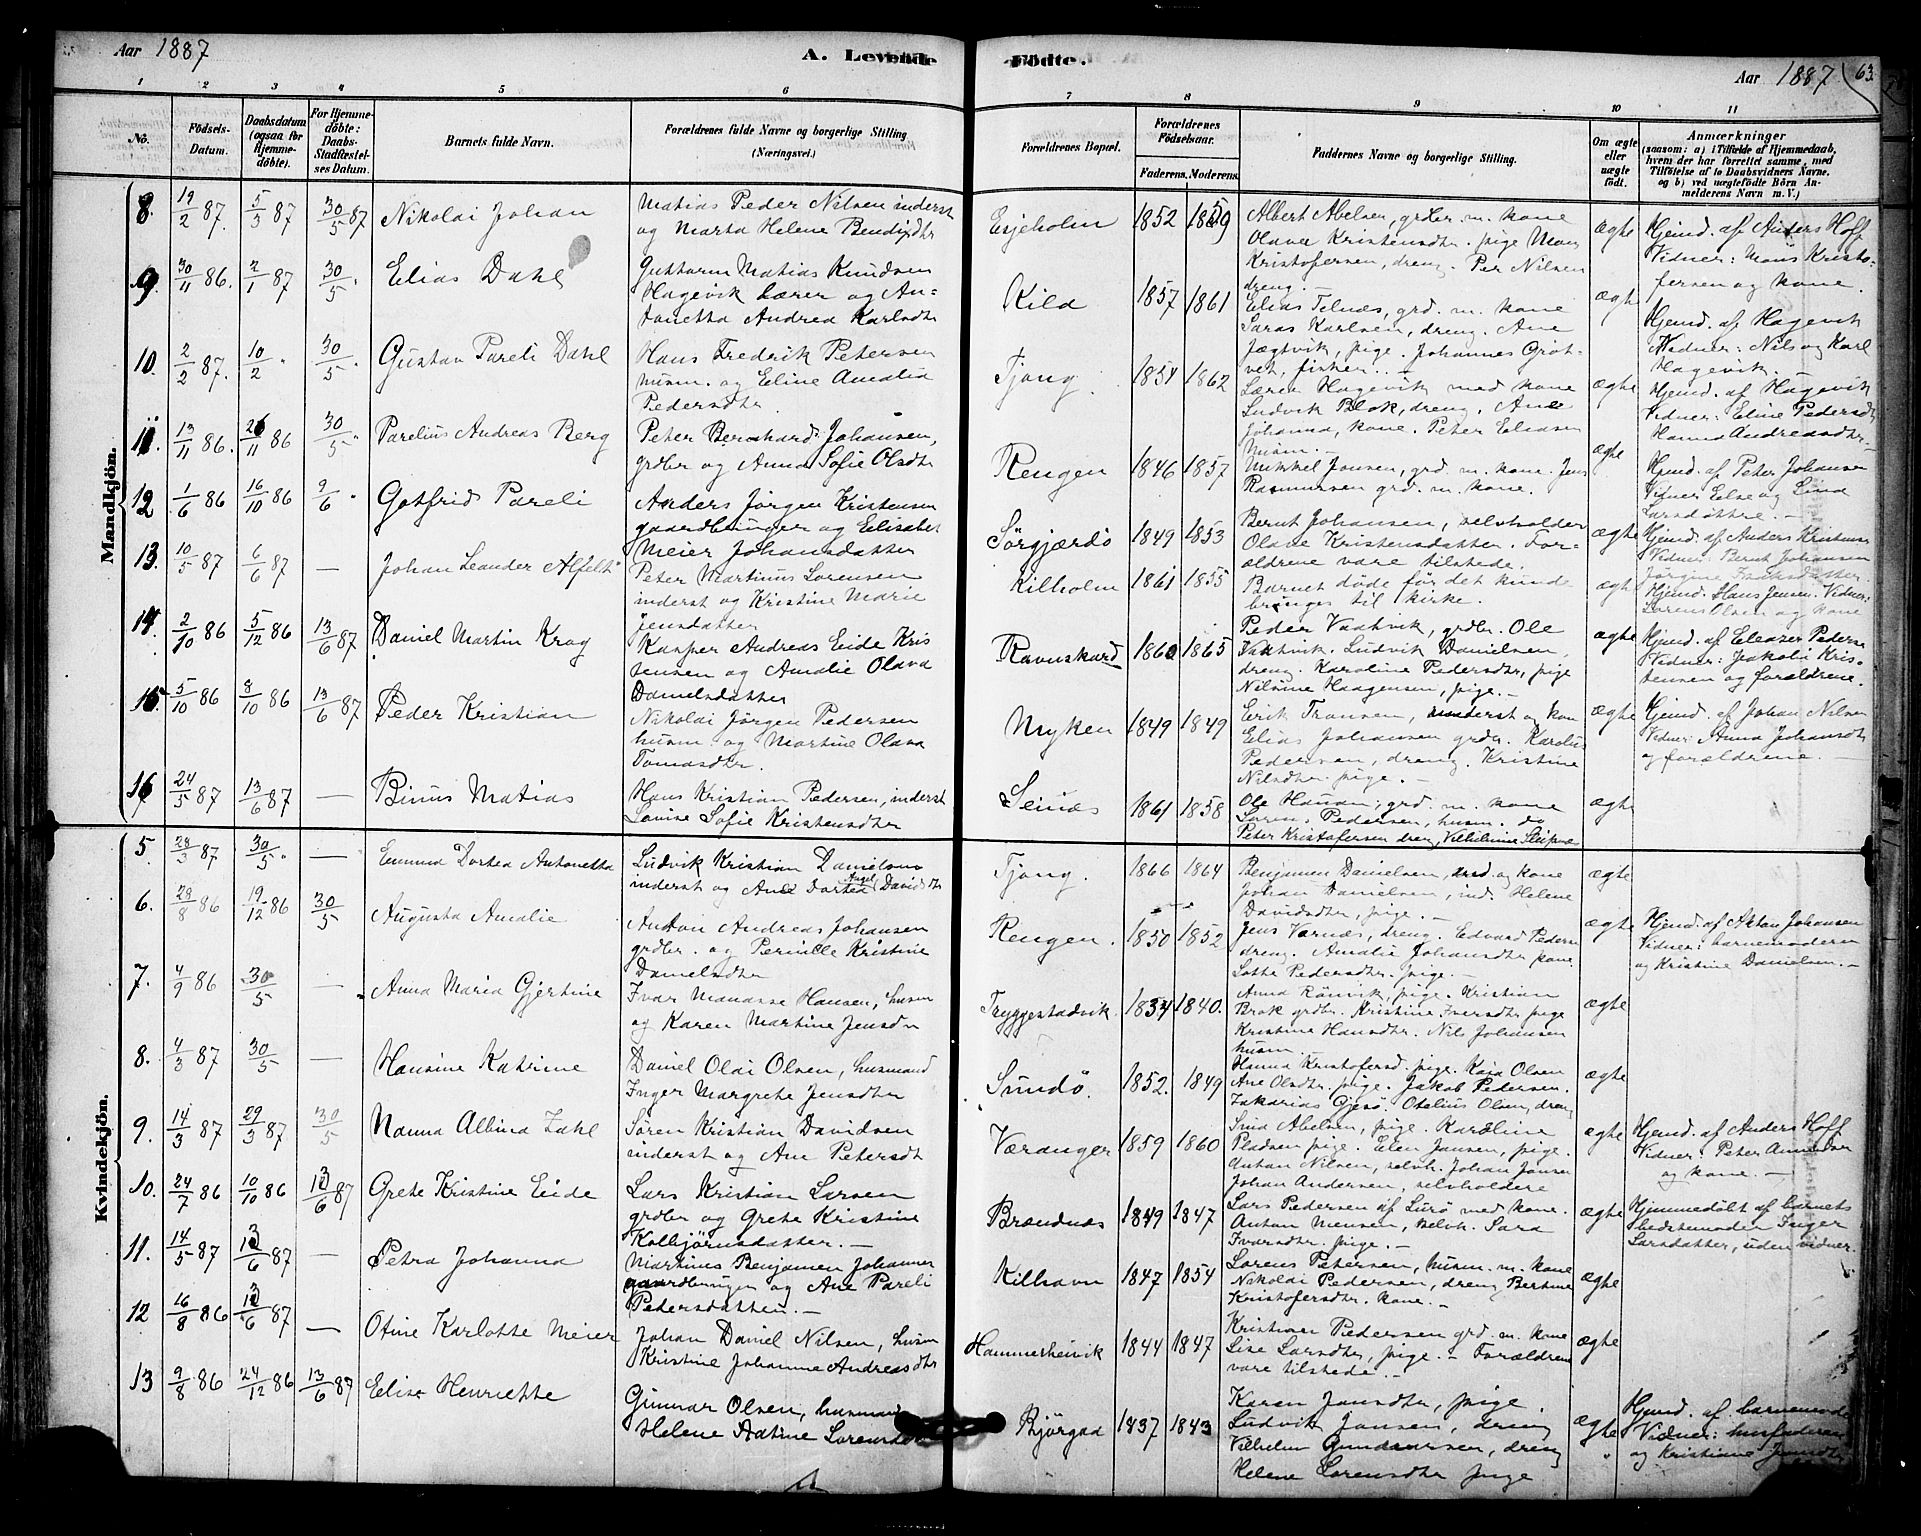 Aar 1887
A. Levende
Födte.
Aar 1887
63.
1 2 3 4 5 6 7 8 9 10 11
No.
Födsels-Datum.
Daabsdatum (ogsaa for Hjemmedöbte).
For Hjemmedöbte: Daabs-Stadfæstelses Datum.
Barnets fulde Navn.
Forældrenes fulde Navne og borgerlige Stilling (Næringsvei.)
Forældrenes Bopæl.
Forældrenes Födselsaar.
Faderens. Moderens.
Faddernes Navne og borgerlige Stilling.
Om ægte eller uægte födt.
Anmærkninger
(saasom: a) i Tilfælde af Hjemmedaab, hvem der har forrettet samme, med Tilföielse af to Daabsvidners Navne. og b) ved uægtefödte Börn Anmelderens Navn m. V.)
Mandkjön.
8. 19/2 87. 5/3 87 30/5 87 Nikolai Johan
Matias Peder Nilsen inderst
og Marta Helene Bendixdtr
Esjeholm 1852 1859
Albert Abelsen, grdbr. m. kone
Olava Kristensdtr. pige Mons
Kristofersen, dreng. Per Nilsen
dreng.
ægte
Hjemd. af Anders Hoff
Vidner: Mons Kristo=
fersen og kone.
9. 30/11 86. 2/1 87 30/5 Elias Dahl
Guttorm Matias Knudsen
Hagevik lærer og An=
tonetta Andrea Karlsdtr
Kila 1857 1861
Elias Telnes, grd. m. kone
Saras Karlsen, dreng. Ane
Jægtvik, pige. Johannes Grot-
vek, fisker. -
ægte
Hjemd. af Hagevik
Vidner: Nils og Karl
Hagevik.
10. 2/2 87. 10/2 " 30/5 Gustav Pareli Dahl
Hans Fredrik Petersen
husm. og Eline Amalia
Pedersdtr.
Tjong 1854 1862
Lærer Hagevik med kone
Ludvik Blok, dreng. Ane
Johanna, kone. Peter Eliasen
husm.
ægte
Hjemd. af Hagevik
Vidner: Eline Pedersdtr
Hanna Andreasdtr
11. 13/11 86. 26/11 86 30/5 " Parelius Andreas Berg
Peter Bernhard Johansen,
grdbr og Anna Sofie Olsdtr
Rengen 1846 1857
Mikkel Jonsen, grd. m. kone. Jens
Rasmussen grd. m. kone.
ægte
Hjemd. af Peter Johansen
Vidner Else og Lina
Larsdøttre. -
12 1/6 86 16/10 86 9/6 " Gotfrid Pareli
Anders Jørgen Kristensen
gaardbruger og Elisabet
Meier Johansdatter
Sørgjærdø 1849 1853
Bernt Johansen, selvholder
Olave Kristensdatter. For-
ældrene vare tilstede.
ægte
Hjemd. af Anders Kristensen
Vidner: Bernt Johansen
13. 10/5 87 6/6 87 — Johan Leander Alfelt
Peter Martinus Lorensen
inderst og Kristine Marie
Jensdatter
Kilholm 1861 1855
Barnet døde før det kunde
bringes til kirke.
ægte
Hjemd: Hans Jensen. Vidner:
Lorens Olsen og kone
14. 2/10 86 5/12 86 13/6 87 Daniel Martin Krog
Kasper Andreas Eide Kris
tensen og Amalie Olava
Danielsdatter
Ravnskard 1860 1865
Peder Vaatvik, grdbr. Ole
Vaatvik. Ludvik Danielsen,
dreng. Karoline Pedersdtr, pige
Nilsine Haagensen, pige. -
ægte
Hjemd. af Eleaser Pederse
Vidner: Jakobi Kris-
tensen og forældrene.
15. 5/10 86 8/10 86 13/6 87 Peder Kristian
Nikolai Jørgen Pedersen
husm. og Martine Olava
Tomasdtr.
Myken 1849 1849
Erik Transen, inderst og kone
Elias Johansen grdbr. Karolus
Pedersen, dreng. Kristine
Nilsdtr. pige. -
ægte
Hjemd. af Johan Nilsen
Vidner: Anna Johansdtr
og forældrene. -
16 24/5 87 13/6 87 — Binus Matias
Hans Kristian Pedersen, inderst
Lovise Sofie Kristensdtr
Seines 1861 1858
Ole Hauan, grd. m. kone
Soren Pedersen, husm. do
Peter Kristofersen dren, Vilhelmine
ægte
Kvindekjön.
5. 28/3 87 30/5 " — Emma Dortea Antonetta
Ludvik Kristian Danielsen
inderst og Ane Dortea Angel Davidsdtr
Tjong. 1866 1864
Benjamin Danielsen, grd og kone
Johan Danielsen, ind. Helene
Davidsdtr, pige. -
ægte
6. 28/8 86 19/12 86 30/5 Augusta Amalie
Anton Andreas Johansen
grdbr. og Pernille Kristine
Danielsdtr
Rengen. 1850 1852
Jens Værnes, dreng. Edvard Pedersen
dreng. Amalie Johansdtr kone.
Lotte Pedersdtr. pige. -
ægte
Hjemd. af Johansen
Vidner: barnemoderen
og Kristine Danielsen. -
7. 4/9 86 30/5 — Anna Maria Gjertine
Ivar Manasse Hansen, husm
og Karen Martine Jensdtr
Tryggestadvik. 1834 1840.
Anna Rönvik, pige. Kristian
Brak grdbr. Kristine Iversdtr pige
Kristine Hansdtr. Nils Johansen
husm
ægte
8. 4/3 87 30/5 — Hansine Katrine
Daniel Olai Olsen, husmand
Inger Margrete Jensdtr
Sundø. 1852. 1849
Hanna Kristofersd. pige. Kaja Olsen
Ane Olsdtr. pige. Jakob Pedersen.
Zakarias Gjesø. Otelius Olsen, dreng
ægte
9. 14/3 87 29/3 87 30/5 Nanna Albina Zahl
Søren Kristian Davidsen
inderst og Ane Petersdt
Væranger 1859 1860
Lina Abelsen, pige. Karoline
Pladsen pige. Elen Jansen, pige.
Antan Nilsen, selvh. Johan Jansen
Johan Andersen, selvholdere
ægte
Hjemd. af Anders Hoff
Vidner: Peter Amundsen
og kone. -
10. 24/7 86 10/10 86 13/6 87 Grete Kristine Eide
Lars Kristian Larsen
grdbr og Grete Kristine
Kolbjørnsdatter. -
Brændnes 1849 1847
Lars Pedersen af Lurø med kone.
Antan Mensen, selvh. Sara
Ivarsdtr. pige. -
ægte
Hjemmedøbt af barnets
bedstemoder Inger
Larsdatter, uden vidner.
11. 14/5 87 13/6 87 — Petra Johanna
Martines Benjamin Johannes
gaardbruger og Ane Pareli
Pedersdatter. -
Kilhavn 1847 1854
Lorens Petersen, husm. m. kone
Nikolai Pedersen, dreng Bertine
Kristofersdtr. kone. -
ægte
12 16/8 86 13/6 87 — Otine Karlotte Meier
Johan Daniel Nilsen, husm
Kristine Johanne Andreasdtr
Hammerheivik 1844 1847
Kristian Pedersen grd. m. kone
Lise Larsdtr, pige. - Forældrene
vare tilstede. -
ægte
13 9/8 86 24/12 86 13/6 87 Elise Henriette
Gunnar Olsen, husmand
Helene Aatine Lorensdtr
Bjørgad 1837 1843
Karen Jansdtr, pige.
Ludvik Jansen, dreng
Vilhelm Gundersen, dreng
Helene Lorensdtr pige
ægte
Hjemd. af barnemode
Vidner: husfaderen
og Kristiane Jansdtr